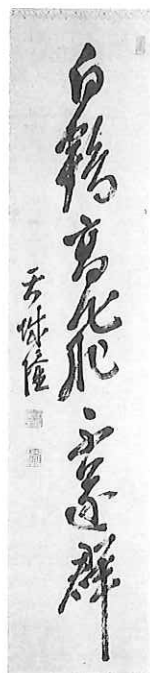 白鶴高飛不逐群
天城